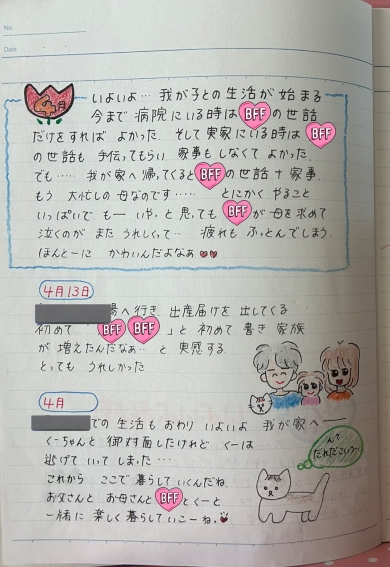 No.
Date
4月
いよいよ… 我が子との生活が始まる
今まで病院にいる時はBFFの世話
だけをすれば よかった. そして実家にいる時はBFF
の世話も 手伝ってもらい. 家事もしなくてよかった.
でも…… 我が家へ帰ってくるとBFFの世話+家事.
もう 大忙しの母なのです…… とにかくやること
いっぱいで もー いや。と思っても BFFが母を求めて
泣くのが またうれしくて… 疲れも ふっとんでしまう.
ほんとーに かわいんだよなぁ
4月13日
場へ行き. 出産届けを 出してくる
初めて「BFF BFF」と 初めて 書き 家族
が 増えたんだなぁ… と 実感する.
とっても うれしかった
4月
での生活もおわり いよいよ 我が家へ――
くーちゃんと 御対面したけれど くーは
逃げて いってしまった…
これから ここで 暮らしていくんだね.
お父さんと お母さんとBFFとくーと
一緒に 楽しく暮らしていこーね.
んて
だれだこいつ